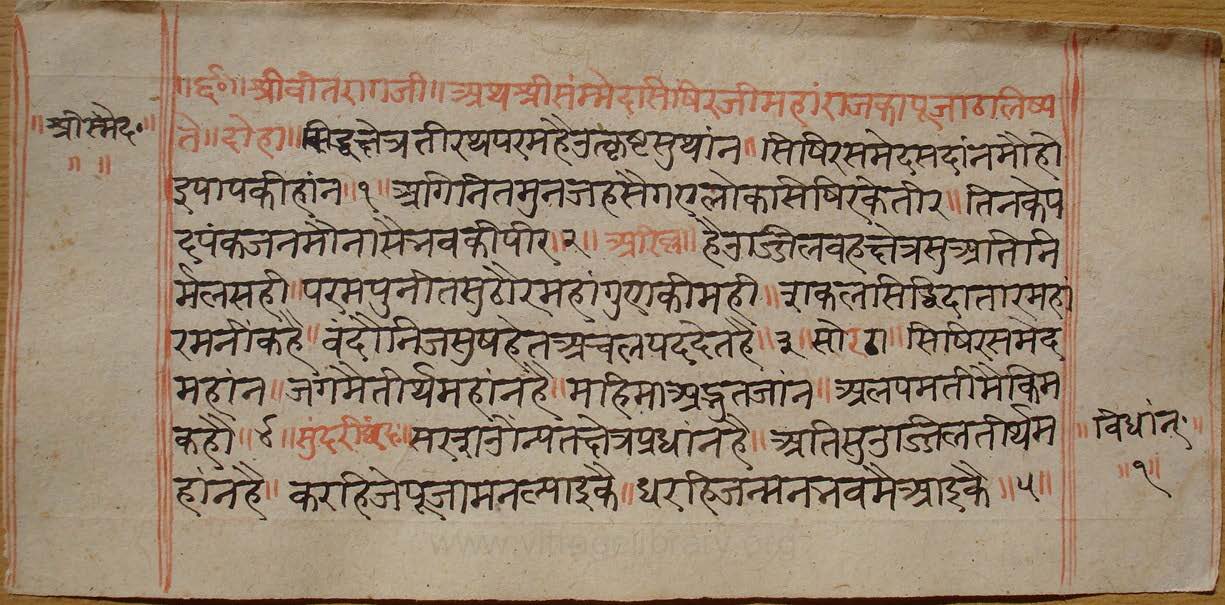 ॥र्द्द०॥श्रीवीतरागजी॥अथश्रीसंम्मेदसिषिरजीमहांराजकापूजापाठलिष्य
॥श्रीस्मेद॰॥
ते॥दोहा॥सिद्धक्षेत्रतीरथपरमहैउत्कृष्टसुथांन॥सिषिरसमेदसदांनमौहो
इपापकीहांन॥१॥अगिनितमुनजहसैगएलोकसिषिरकेतीर॥तिनकेप
दपंकजनमौनासैभवकीपीर॥२॥अरिल्ल॥हैउज्जिलवहक्षेत्रसुअतिनि
र्मलसही॥परमपुनीतसुठौरमहांगुणकीमही॥सकलसिद्धिदातारमहां
रमनीकहै॥वंदौनिजसुषहेतअचलपददेतहै॥३॥सोरठा॥सिषिरसमेद
महांन॥जगमैतीर्थमहांनहै॥महिमाअद्भुतजांन॥अलपमतीमैकिम
कहौ॥४॥सुंदरीछंद॥सरसउंन्नतक्षेत्रप्रधांनहै॥अतिसुउज्जिलतीर्थम
॥विधांन॰॥
हांनहै॥करहिजेपूजामनल्याइकै॥धरहिजन्मनभवमैआइकै॥५॥
॥१॥
www.vitragvlibrary.org